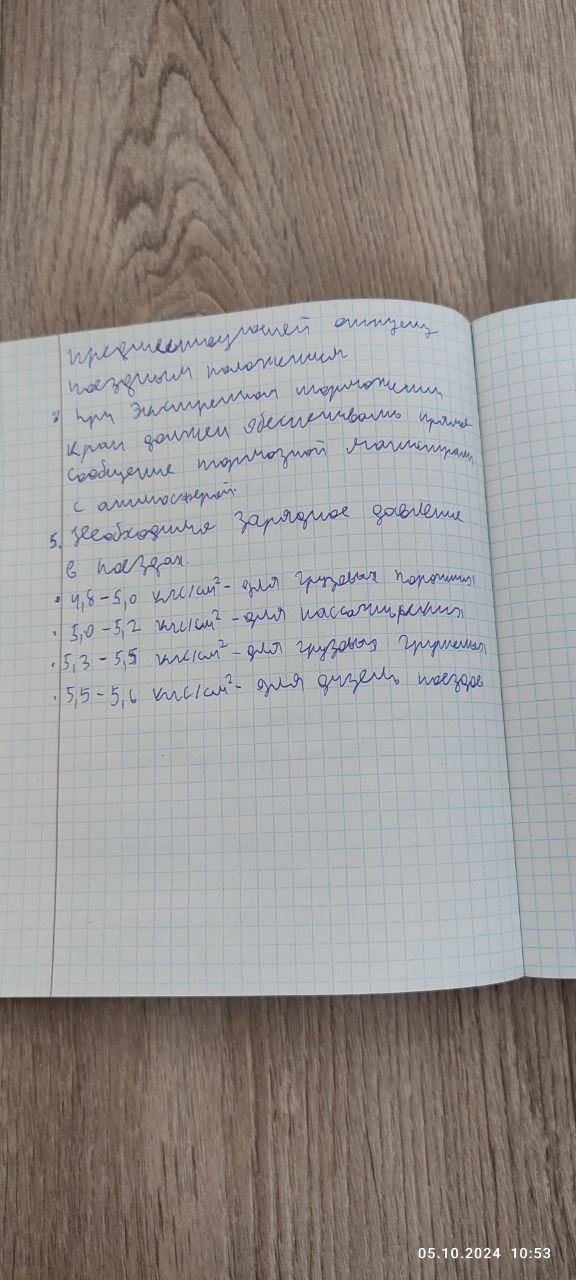 предшествующей отпуску
поездным положением
7 При экстренном торможении
кран должен обеспечивать прямое
сообщение тормозной магистрали
с атмосферой.
5. Необходимое зарядное давление
в поездах.
• 4,8-5,0 кгс/см² - для грузовых порожних
• 5,0-5,2 кгс/см² - для пассажирских
• 5,3-5,5 кгс/см² - для грузовых груженых
• 5,5-5,6 кгс/см² - для дизель поездов
05.10.2024 10:53